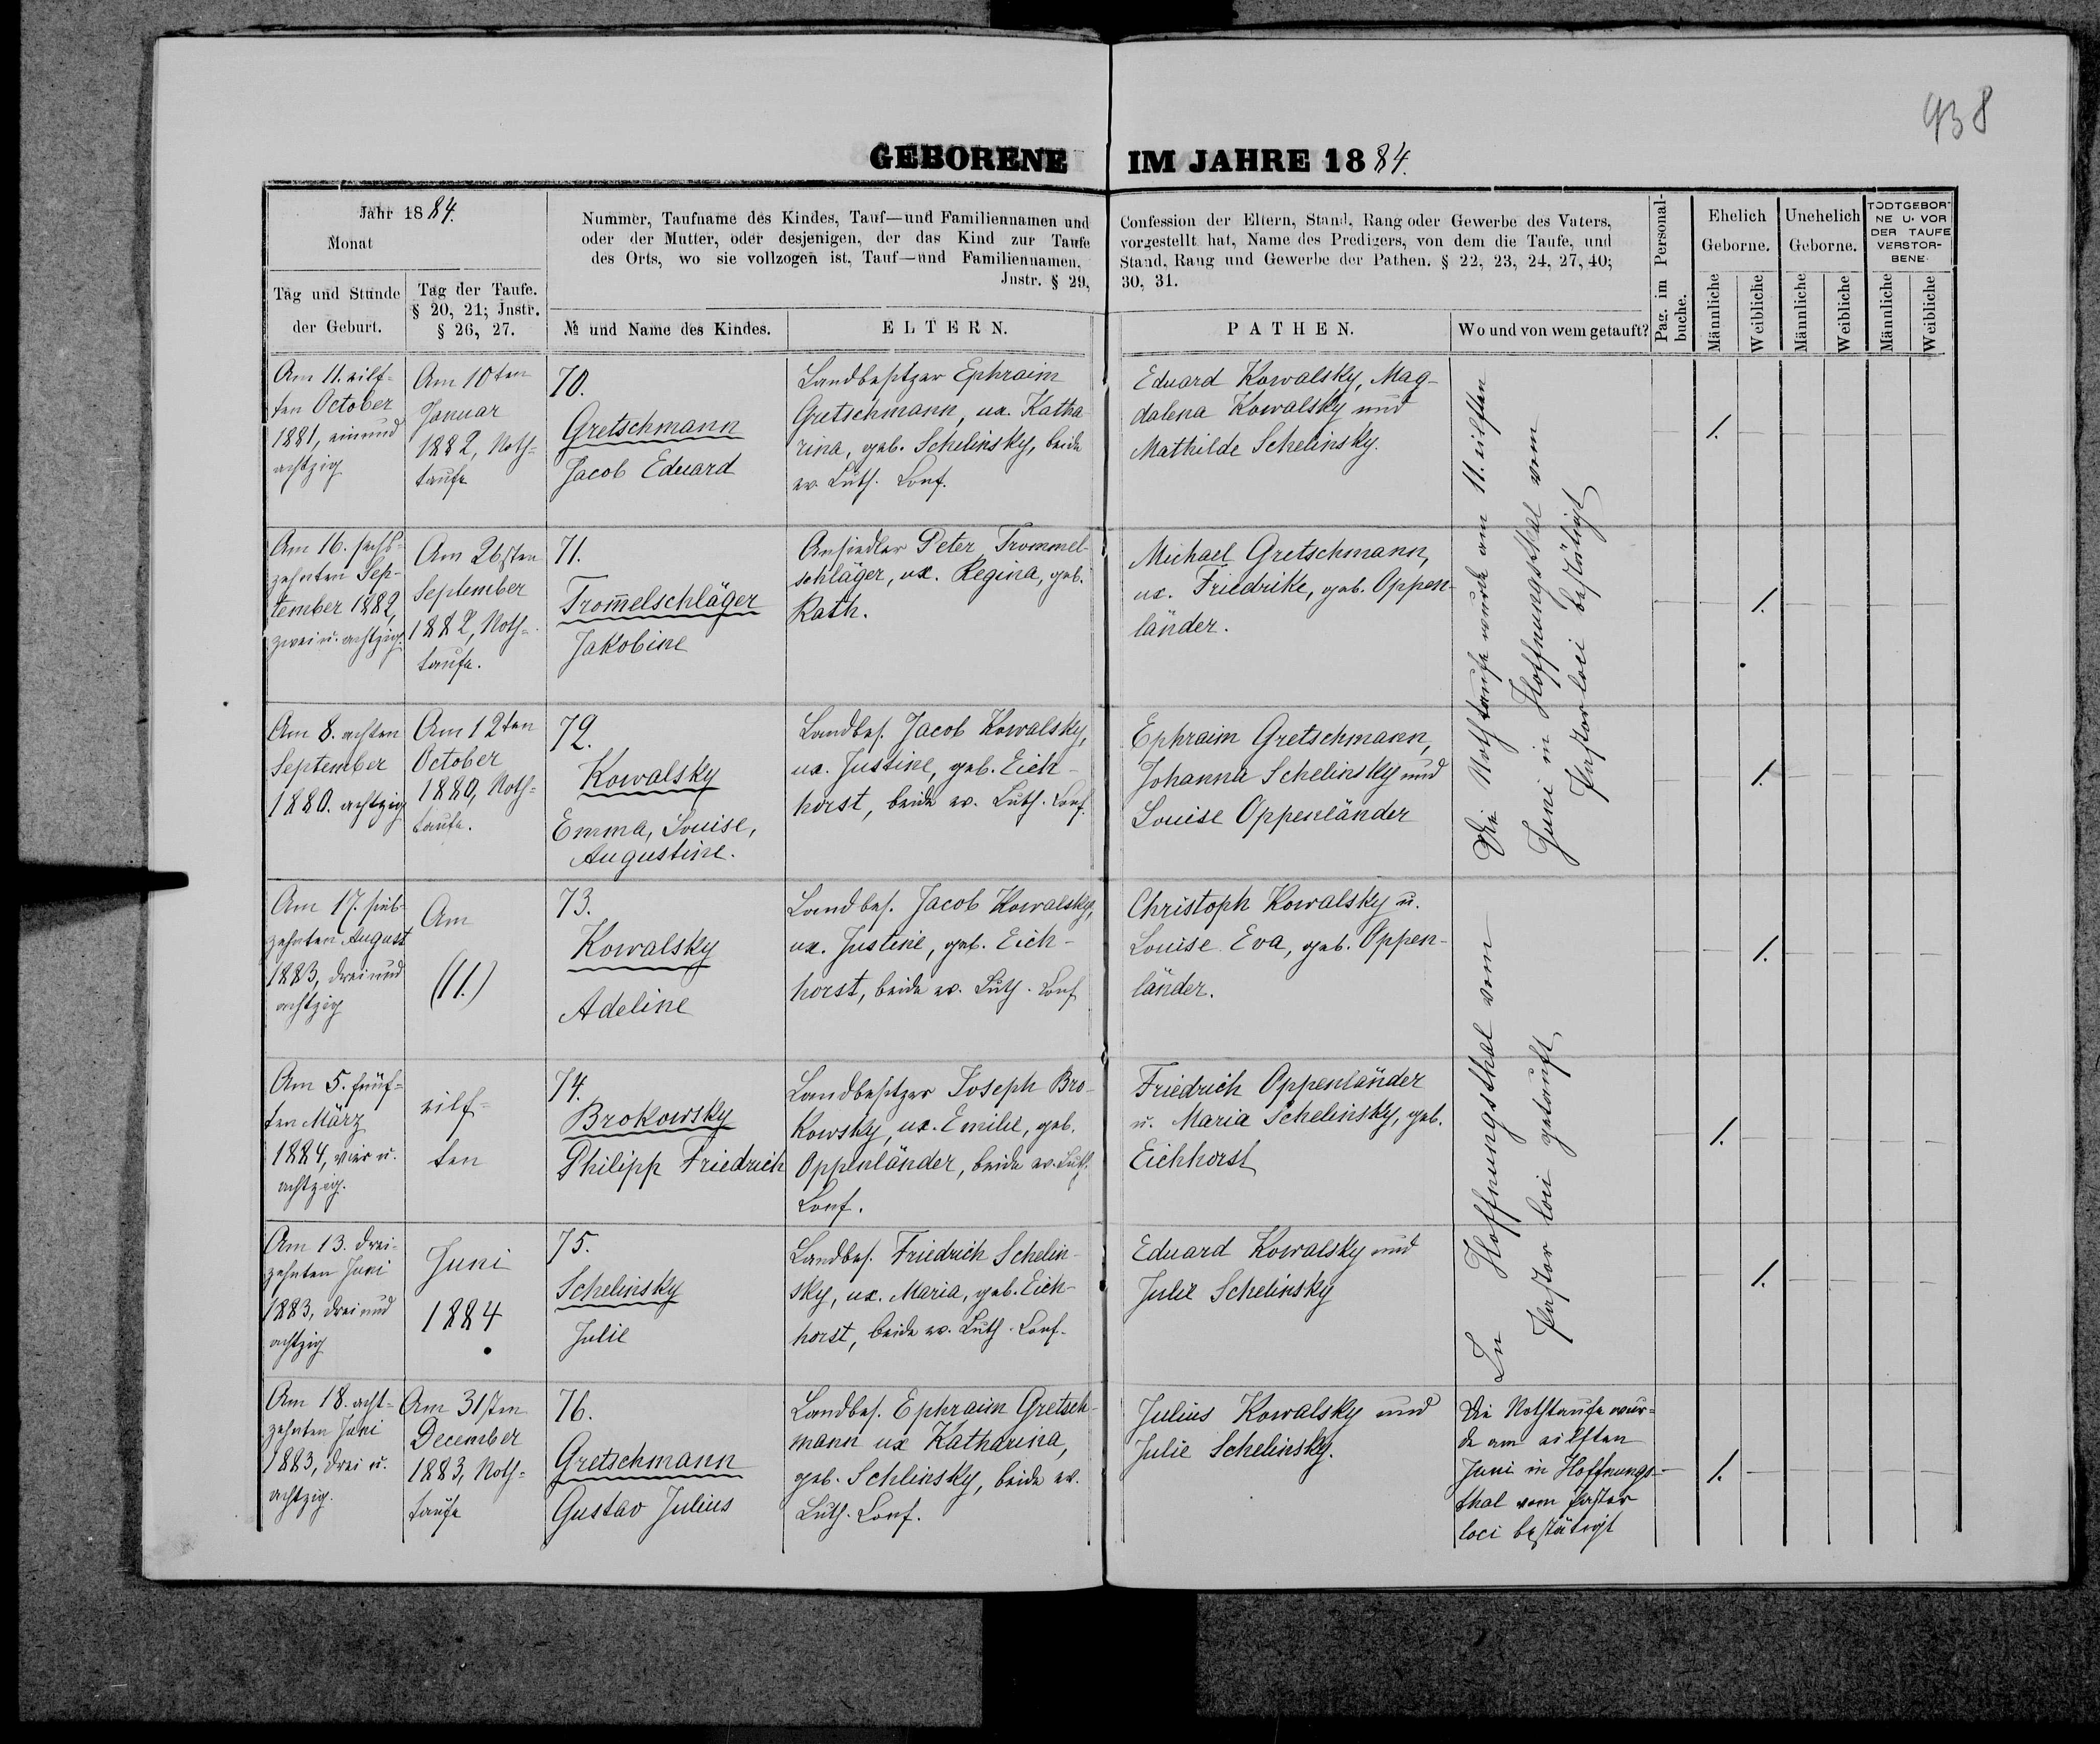 938
GEBORENE IM JAHRE 1884.
Jahr 1884.
Monat
Tag und Stunde
der Geburt.
Tag der Taufe.
§ 20, 21; Jnstr.
§ 26, 27.
Nummer, Taufname des Kindes, Tauf—und Familiennamen und
oder der Mutter, oder desjenigen, der das Kind zur Taufe
des Orts, wo sie vollzogen ist, Tauf—und Familiennamen,
Jnstr. § 29,
№ und Name des Kindes.
ELTERN.
Confession der Eltern, Stand, Rang oder Gewerbe des Vaters,
vorgestellt hat, Name des Predigers, von dem die Taufe, und
Stand, Rang und Gewerbe der Pathen. § 22, 23, 24, 27, 40;
30, 31.
PATHEN.
Wo und von wem getauft?
Pag. im Personal-
buche.
Ehelich
Geborne.
Unehelich
Geborne.
TODTGEBOR-
NE U. VOR
DER TAUFE
VERSTOR-
BENE
Männliche
Weibliche
Männliche
Weibliche
Männliche
Weibliche
Am 11. eilf-
ten October
1881, einund
achtzig
Am 10ten
Januar
1882, Noth-
taufe
70.
Gretschmann
Jacob Eduard
Landbesitzer Ephraim
Gretschmann, ux. Katha
rina, geb. Schelinsky, beide
ev. Luth. Conf.
Eduard Kowalsky, Mag-
dalena Kowalsky und
Mathilde Schelinsky.
1.
Am 16. sechs-
zehnten Sep-
tember 1882,
zwei u. achtzig
Am 26sten
September
1882, Noth-
taufe.
71.
Trom̅elschläger
Jakobine
Ansiedler Peter Trommel-
schläger, ux. Regina, geb.
Rath.
Michael Gretschmann,
ux. Friedrike, geb. Oppen-
länder.
1.
Am 8. achten
September
1880. achtzig
Am 12ten
October
1880, Noth-
taufe.
72.
Kowalsky
Emma, Louise,
Augustine.
Landbes. Jacob Kowalsky,
ux. Justine, geb. Eich-
horst, beide ev. Luth. Conf.
Ephraim Gretschmann,
Johanna Schelinsky und
Louise Oppenländer
1.
Die Nothtaufe wurde am 11. eilften
Juni in Hoffnungsthal vom
Pastor loci bestätigt
Am 17. sieb-
zehnten August
1883, dreiund
achtzig
Am
(11.)
73.
Kowalsky
Adeline
Landbes. Jacob Kowalsky,
ux. Justine, geb. Eich-
horst, beide ev. Luth. Conf
Christoph Kowalsky u.
Louise Eva, geb. Oppen-
länder.
1.
Am 5. fünf-
ten März
1884, vier u.
achtzig.
eilf-
ten
74.
Brokowsky
Philipp Friedrich
Landbesitzer Joseph Bro-
kowsky, ux. Emilie, geb.
Oppenländer, beide ev. Luth.
Conf.
Friedrich Oppenländer
u. Maria Schelinsky, geb.
Eichhorst
1.
Am 13. drei-
zehnten Juni
1883, dreiund
achtzig
Juni
1884
75.
Schelinsky
Julie
Landbes. Friedrich Schelin-
sky, ux. Maria, geb. Eich-
horst, beide ev. Luth. Conf.
Eduard Kowalsky und
Julie Schelinsky
1.
In Hoffnungsthal vom
Pastor loci getauft
Am 18. acht-
zehnten Juni
1883, drei u.
achtzig.
Am 31sten
December
1883, Noth-
taufe
76.
Gretschmann
Gustav Julius
Landbes. Ephraim Gretsch-
mann ux Katharina,
geb. Schlinsky, beide ev.
Luth. Conf.
Julius Kowalsky und
Julie Schelinsky.
Die Nothtaufe wur-
de am eilften
Juni in Hoffnungs-
thal vom Pastor
loci bestätigt
1.